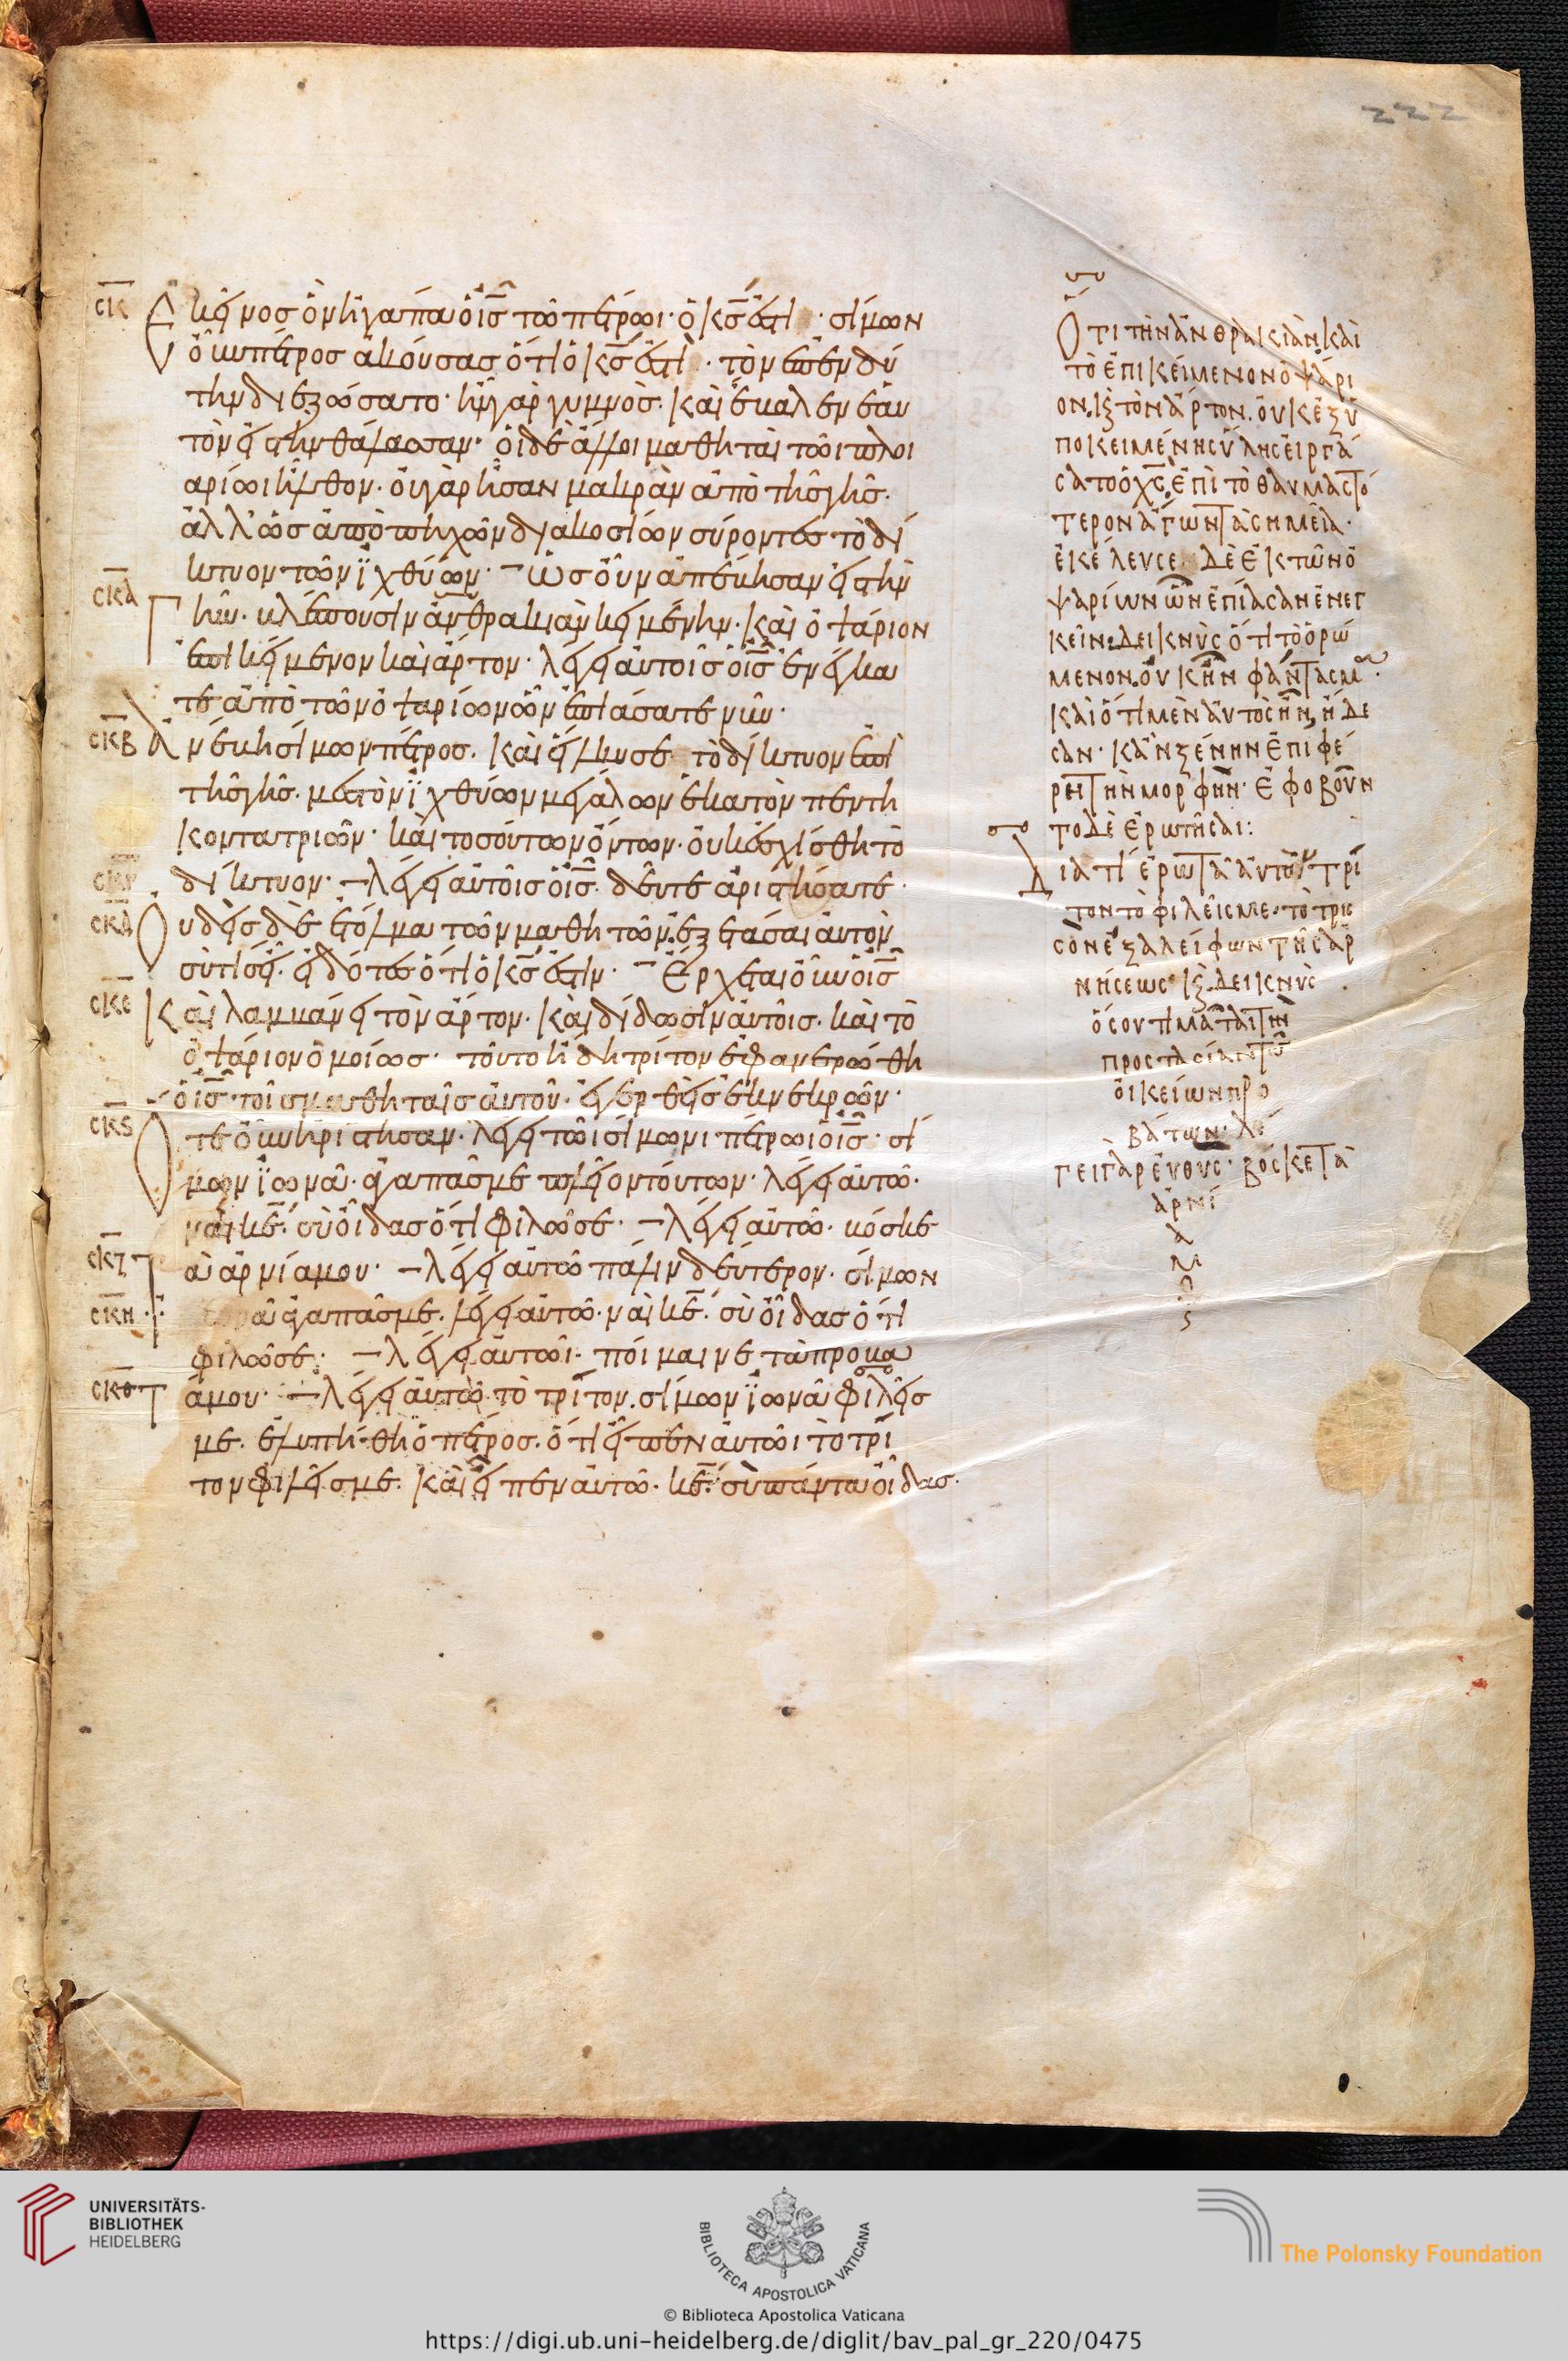 222
σκ
ἐκεῖνος ὃν ἠγάπα ὁ ις̅ τῶ πέτρωι· ὁ κς̅ ἐστι· σίμων
ὀῦν πέτρος ἀκούσας ὅτι ὁ κς̅ ἐστι· τὸν ἐπενδύ
την διεζώσατο· ἦν γὰρ γυμνὸς· καὶ ἔβαλεν ἑαυ
τὸν εἰς τὴν θάλασσαν· οἱ δὲ ἄλλοι μαθηταὶ τῶι πλοι
αρίωι ἦλθον· οὐ γὰρ ἦσαν μακρὰν ἀπὸ τῆς γῆς·
ἀλλ' ὡς ἀπὸ πηχῶν διακοσίων σύροντες τὸ δί
κτυον τῶν ϊχθύων· ὡς οὖν ἀπέβησαν εἰς τὴν
σκα
γῆν· βλέπουσιν ἀνθρακιὰν κειμένην· καὶ ὀψάριον
ἐπικείμενον καὶ ἄρτον· λέγει αὐτοῖς ὁ ις̅ ἐνέγκα
τε ἀπὸ τῶν ὀψαρίων ὧν ἐπιάσατε νῦν·
σκβ
ἀνέβη σίμων πέτρος· καὶ εἵλκυσε τὸ δίκτυον ἐπὶ
τῆς γῆς· μεστὸν ϊχθύων μεγάλων ἑκατὸν πεντή
κοντα τριῶν· καὶ τοσούτων ὄντων· οὐκ ἐσχίσθη τὸ
σκγ
δίκτυον· λέγει αὐτοῖς ὁ ις̅· δεῦτε ἀριστήσατε·
σκδ
Οὐδεὶς δὲ ἐτόλμα τῶν μαθητῶν ἐξετάσαι αὐτὸν
σὺ τίς εἶ· εἰδότες ὅτι ὁ κς̅ ἐστιν· Ἔρχεται οὖν ὁ ις̅
σκε
καὶ λαμβάνει τὸν ἄρτον· καὶ δίδωσιν αὐτοῖς· καὶ τὸ
ὀψάριον ὁμοίως· τοῦτο ἤδη τρίτον ἐφανερώθη
ὁ ις̅ τοῖς μαθηταῖς αὐτοῦ· ἐγερθεὶς ἐκ νεκρῶν·
σκϛ
Ὅτε οὖν ἠρίστησαν· λέγει τῶι σίμωνι πέτρωι ὁ ις̅· σί
μων ϊωνᾶ· ἀγαπᾶς με πλεῖον τούτων· λέγει αὐτῶ·
ναὶ κε̅· σὺ οἶδας ὅτι φιλῶ σε· λέγει αὐτῶ· βόσκε
σκζ
τὰ ἀρνία μου· λέγει αὐτῶ πάλιν δεύτερον· σίμων
σκη
ϊωνᾶ ἀγαπᾶς με· λέγει αὐτῶ· ναὶ κε̅· σὺ οἶδας ὅτι
φιλῶ σε· λέγει αὐτῶι· ποίμαινε τὰ πρόβα
σκθ
τά μου· λέγει αὐτῶ τὸ τρίτον· σίμων ϊωνᾶ φιλεῖς
με· ἐλυπήθη ὁ πέτρος· ὅτι εἶπεν αὐτῶι τὸ τρί
τον φιλεῖς με· καὶ εἶπεν αὐτῶ· κε̅· σὺ πάντα οἶδας·
Ὅτι τὴν ἀνθρακιὰν καὶ
τὸ ἐπικείμενον ὀψάρι
ον κϛ τὸν ἄρτον· οὐκ ἐξ ὑ
ποκειμένης ὕλης εἰργά
σατο ὁ χς̅· ἐπὶ τὸ θαυμαστό
τερον ἄγων τὰ σημεῖα·
ἐκέλευσε δὲ ἐκ τῶν ὀ
ψαρίων ὧν ἐπίασαν ἐνεγ
κεῖν· δεικνὺς ὅτι τὸ ὁρώ
μενον οὐκ ἦν φάντασμα·
καὶ ὅτι μὲν αὐτὸς ἦν ἤδε
σαν· κἂν ξένην ἐπιφέ
ρει τὴν μορφήν· ἐφοβοῦν
το δὲ ἐρωτῆσαι:
Διατί ἐρωτᾶ αὐτὸν τρί
τον τὸ φιλεῖς με· τὸ τρισ
σὸν ἐξαλείφων τῆς ἀρ
νήσεως κϛ δεικνὺς
ὅσου τιμᾶται τὴν
προστασίαν τῶν
οἰκείων προ
βάτων· λέ
γει γὰρ εὐθὺς· βόσκε τὰ
ἀρνί
α
μ
ο
υ
UNIVERSITÄTS-
BIBLIOTHEK
HEIDELBERG
BIBLIOTECA APOSTOLICA VATICANA
The Polonsky Foundation
© Biblioteca Apostolica Vaticana
https://digi.ub.uni-heidelberg.de/diglit/bav_pal_gr_220/0475